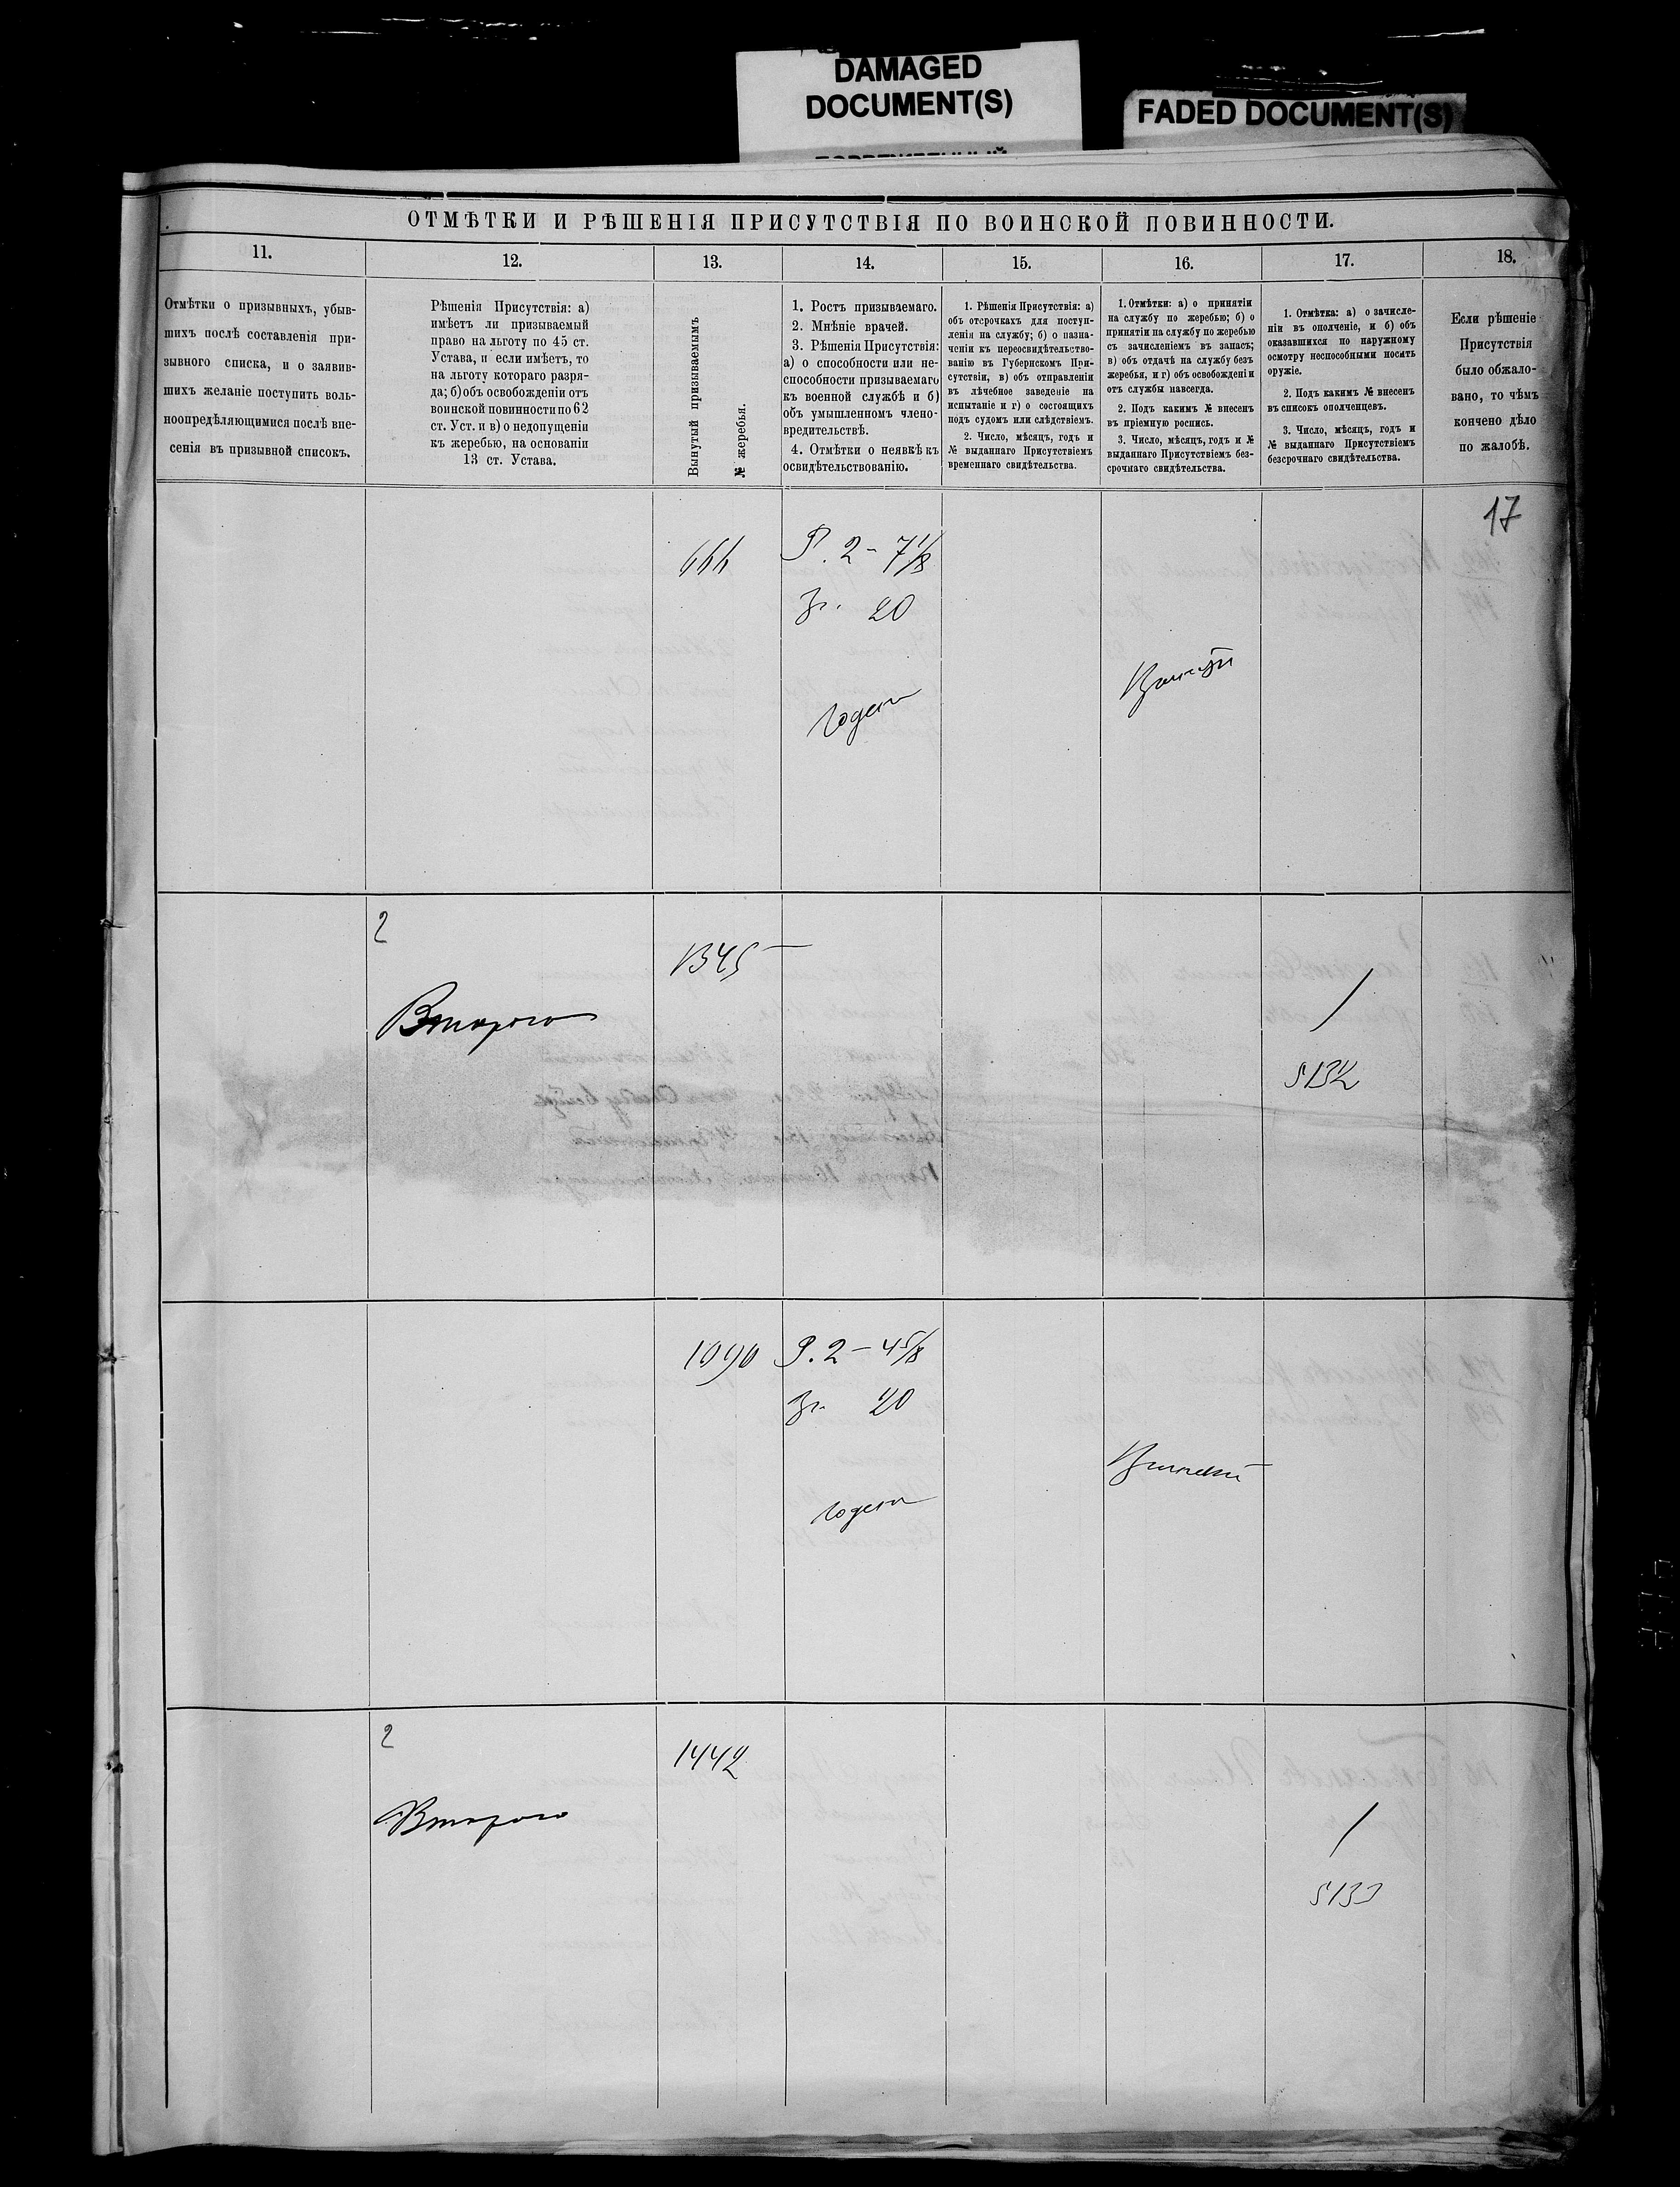 DAMAGED
DOCUMENT(S)
FADED DOCUMENT(S)
ОТМѢТКИ И РѢШЕНІЯ ПРИСУТСТВІЯ ПО ВОИНСКОЙ ПОВИННОСТИ.
11.
12.
13.
14.
15.
16.
17.
18.
Отмѣтки о призывныхъ, убыв-
шихъ послѣ составленія при-
зывного списка, и о заявив-
шихъ желаніе поступить воль-
ноопредѣляющимися послѣ вне-
сенія въ призывной списокъ.
Рѣшенія Присутствія: а)
имѣетъ ли призываемый
право на льготу по 45 ст.
Устава, и если имѣетъ, то
на льготу котораго разря-
да; б) объ освобожденіи отъ
воинской повинности по 62
ст. Уст. и в) о недопущеніи
къ жеребью, на основаніи
13 ст. Устава.
Вынутый призываемымъ
№ жеребья.
1. Ростъ призываемаго.
2. Мнѣніе врачей.
3. Рѣшенія Присутствія:
а) о способности или не-
способности призываемаго
къ военной службѣ и б)
объ умышленномъ члено-
вредительствѣ.
4. Отмѣтки о неявкѣ къ
освидѣтельствованію.
1. Рѣшенія Присутствія: а)
объ отсрочкахъ для поступ-
ленія на службу; б) о назна-
ченіи къ переосвидѣтельство-
ванію въ Губернскомъ При-
сутствіи, в) объ отправленіи
въ лѣчебное заведеніе на
испытаніе и г) о состоящихъ
подъ судомъ или слѣдствіемъ.
2. Число, мѣсяцъ, годъ и
№ выданнаго Присутствіемъ
временнаго свидѣтельства.
1. Отмѣтки: а) о принятіи
на службу по жеребью; б) о
принятіи на службу по жеребью
съ зачисленіемъ въ запасъ;
в) объ отдачѣ на службу безъ
жеребья, и г) объ освобожденіи
отъ службы навсегда.
2. Подъ какимъ № внесенъ
въ пріемную роспись.
3. Число, мѣсяцъ, годъ и №
выданнаго Присутствіемъ без-
срочнаго свидѣтельства.
1. Отмѣтка: а) о зачисле-
ніи въ ополченіе, и б) объ
оказавшихся по наружному
осмотру неспособными носить
оружіе.
2. Подъ какимъ № внесенъ
въ списокъ ополченцевъ.
3. Число, мѣсяцъ, годъ и
№ выданнаго Присутствіемъ
безсрочнаго свидѣтельства.
Если рѣшеніе
Присутствія
было обжало-
вано, то чѣмъ
кончено дѣло
по жалобѣ.
17
Р. 2 - 7 1/8
Зр. 20
Годенъ
2
1345
Второго
/
5132
1090
Р. 2 - 4 5/8
Зр. 20
Годенъ
2
1442
Второго
/
5133